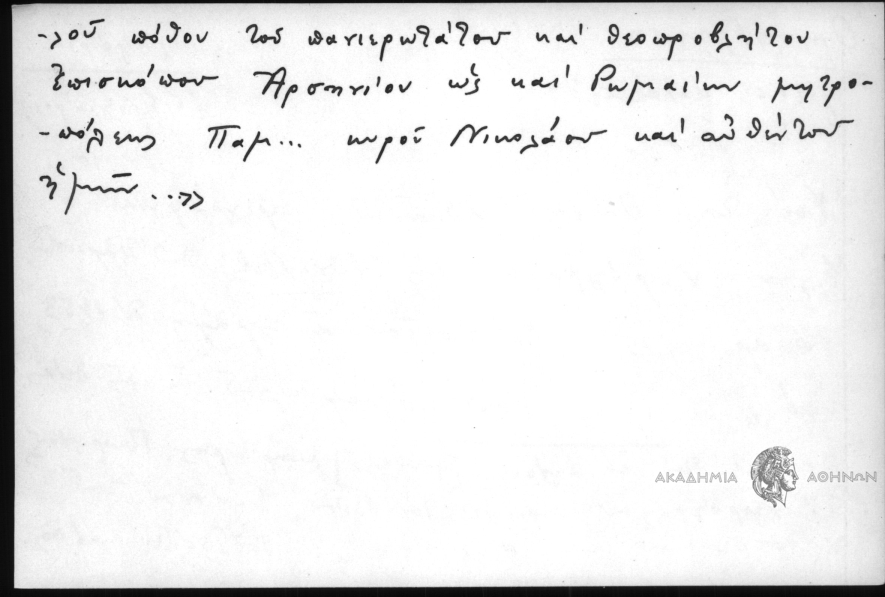 -λοῦ πόθου τοῦ πανιερωτάτου καὶ θεοπροβλήτου
Ἐπισκόπου Ἀρσενίου ὡς καὶ Ῥωμαίων μητρο-
-πόλεως Παμ... κυροῦ Νικολάου καὶ αὐθέντου
ἡμῶν...»
ΑΚΑΔΗΜΙΑ ΑΘΗΝΩΝ